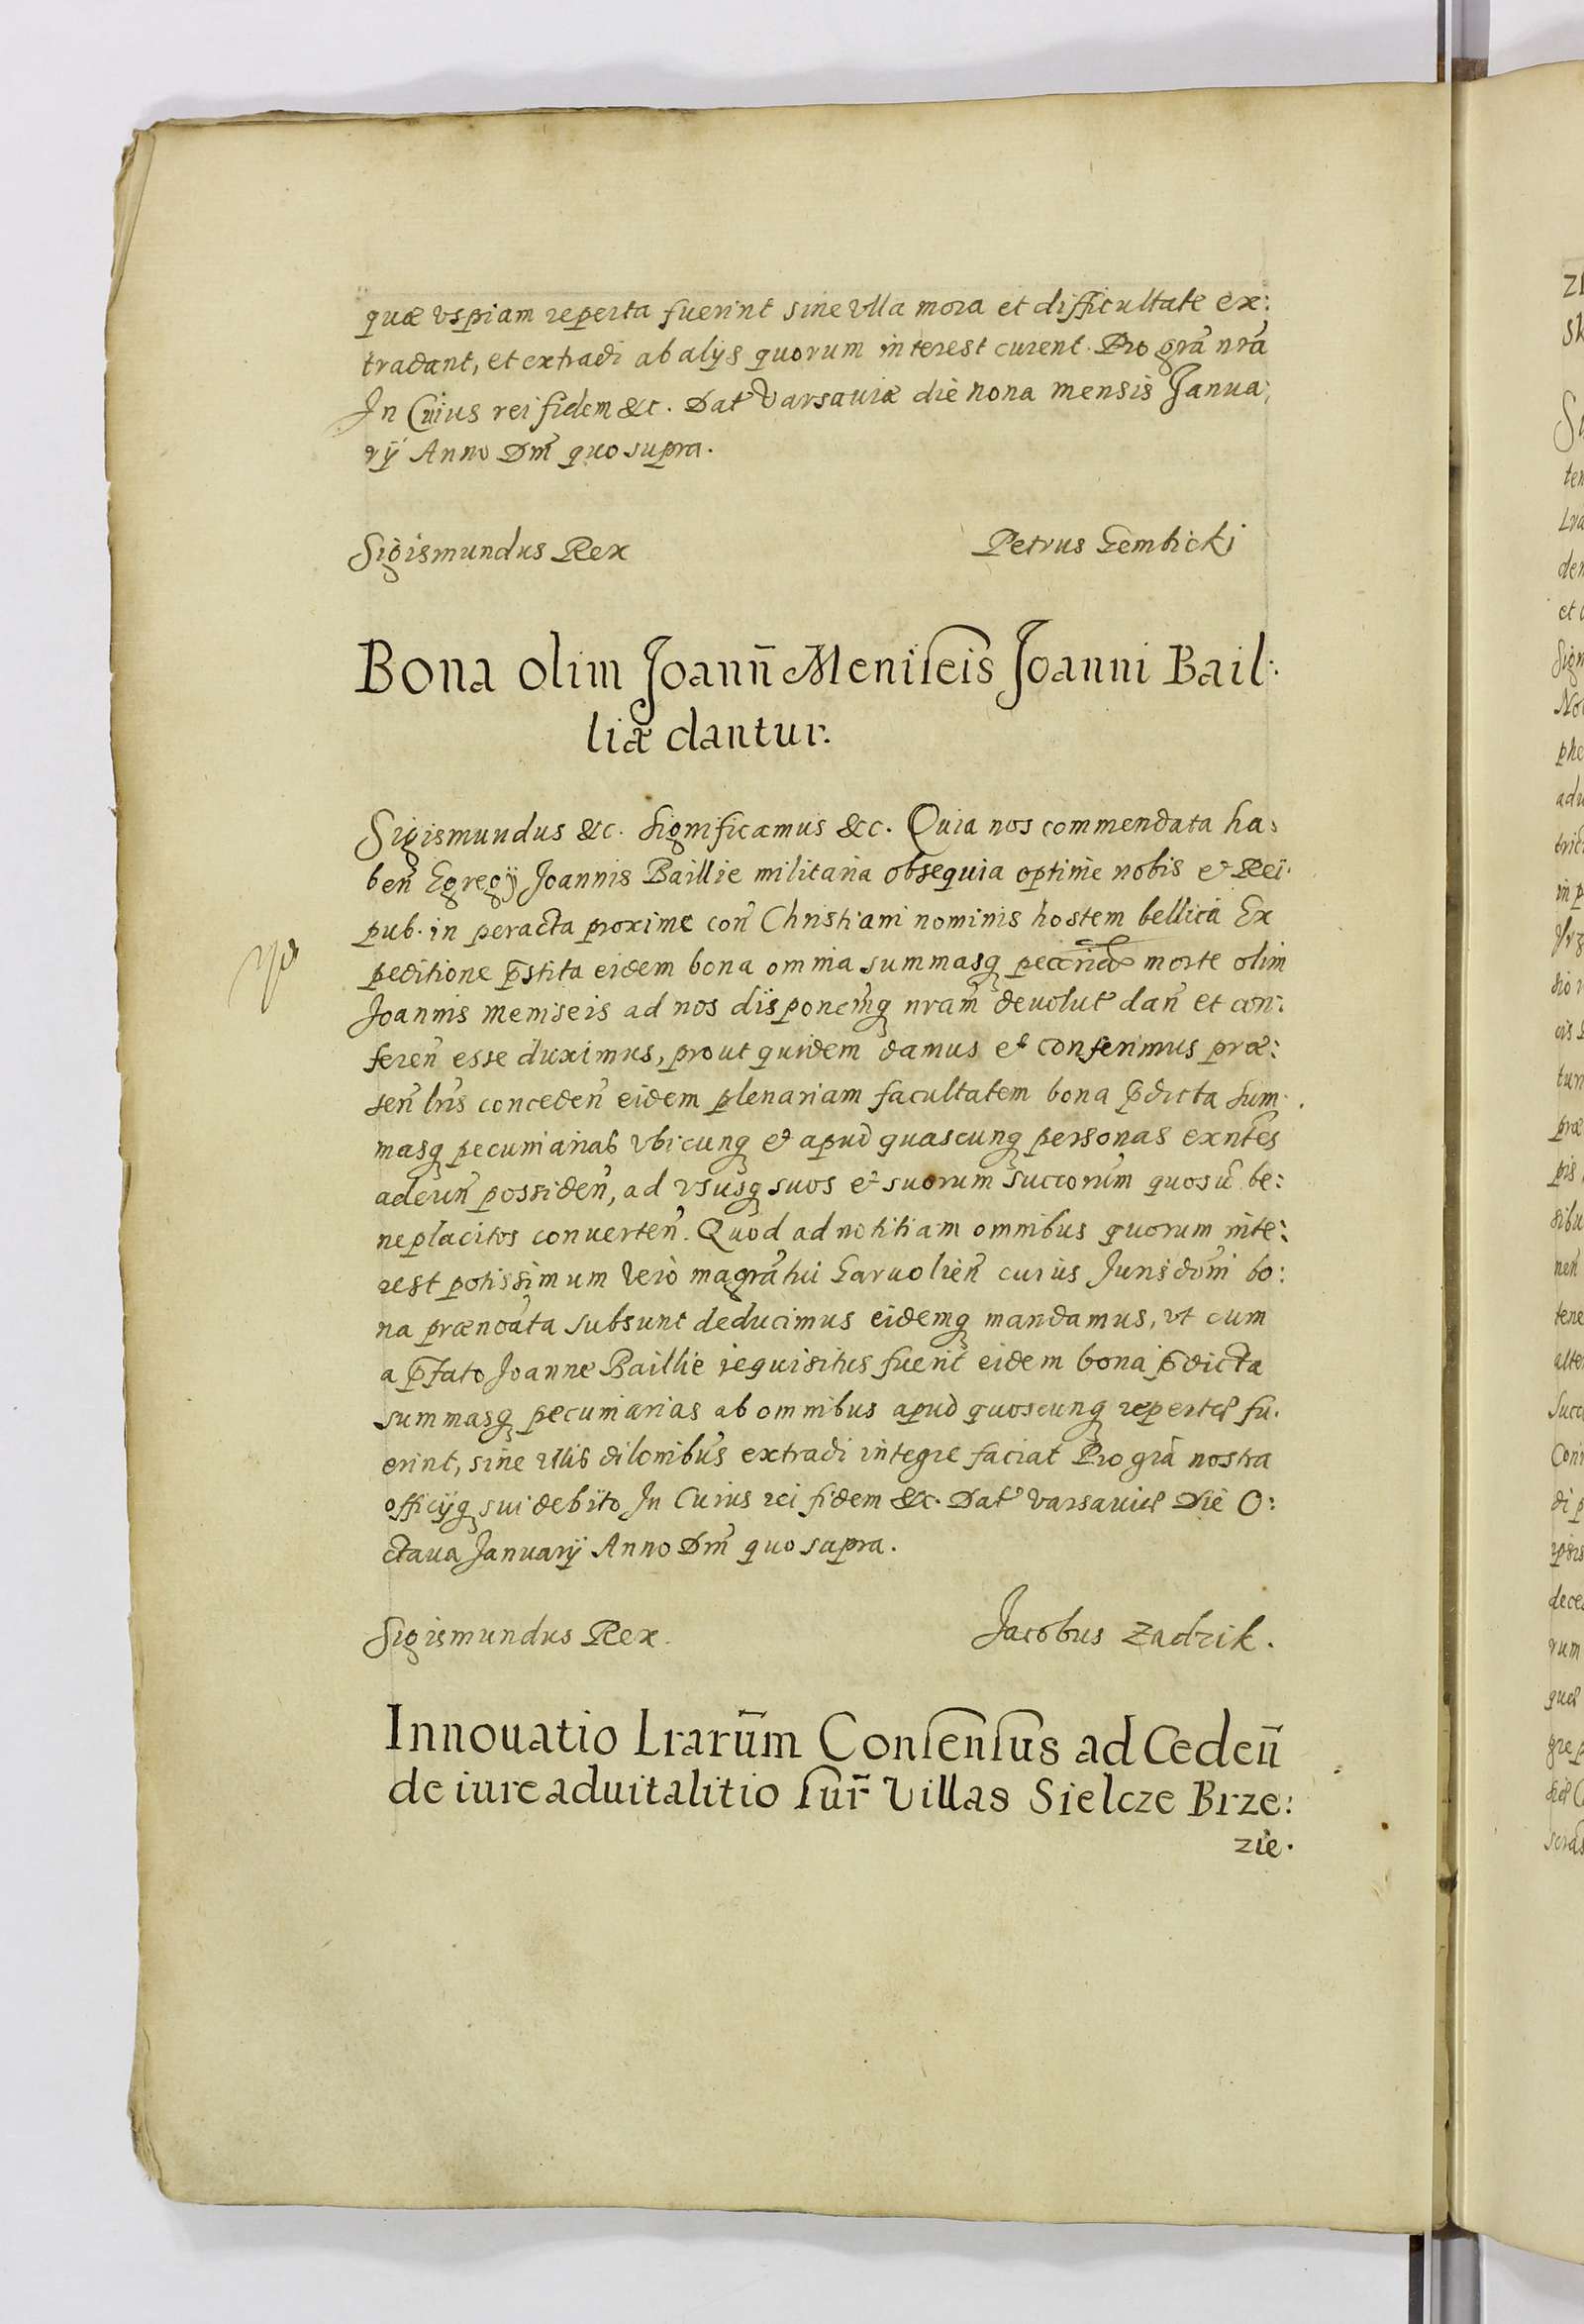 quæ vspiam reperta fuerint sine vlla mora et difficultate ex:
tradant, et extradi ab alijs quorum interest curent. Pro grã nrã
In Cuius rei fidem &c. Dat Varsauiæ die nona mensis Janua:
rij Anno Dm̃ quo supra.
Sigismundus Rex
Petrus Gembickj
Bona olim Joann̄ Meniseis Joanni Bail:
liæ dantur.
Sigismundus &c. Significamus &c. Quia nos commendata ha:
ben̄ Egregij Joannis Baillie militaria obsequia optime nobis et Rei:
pub. in peracta proxime con̄ Christiani nominis hostem bellica Ex
peditione p̄stita eidem bona omnia summasq morte olim
Joannis meniseis ad nos disponem̄q nram̄ deuolut dan̄ et con:
feren̄ esse duximus, prout quidem damus et conferimus præ:
sen̄ lris conceden̄ eidem plenariam facultatem bona p̄dicta sum:
masq pecuniarias vbicunq et apud quascunq personas exn̄tes
adeun̄ possiden̄, ad vsusq suos et suorum succorum̄ quosũ be:
neplacitos conuerten̄. Quod ad notitiam omnibus quorum inte:
rest potissimum vero magrãtui Garuolien̄ cuius Jurisdom̄i bo:
na prænoãta subsunt deducimus eidemq mandamus, vt cum
a p̄fato Joanne Baillie requisitus fuerit eidem bona p̄dicta
summasq pecuniarias ab omnibus apud quoscunq repertæ fu:
erint, sine vllis dilonibus̄ extradi integre faciat Pro grã nostra
officijq sui debito In Cuius rei fidem &c. Dat Varsauiæ Die O:
ctaua Januarij Anno Dm̃ quo supra.
Sigismundus Rex.
Jacobus Zadzik.
Innouatio Lrarum̄ Consensus ad Ceden̄
de iure aduitalitio sur̄ Villas Sielcze Brze:
zie.